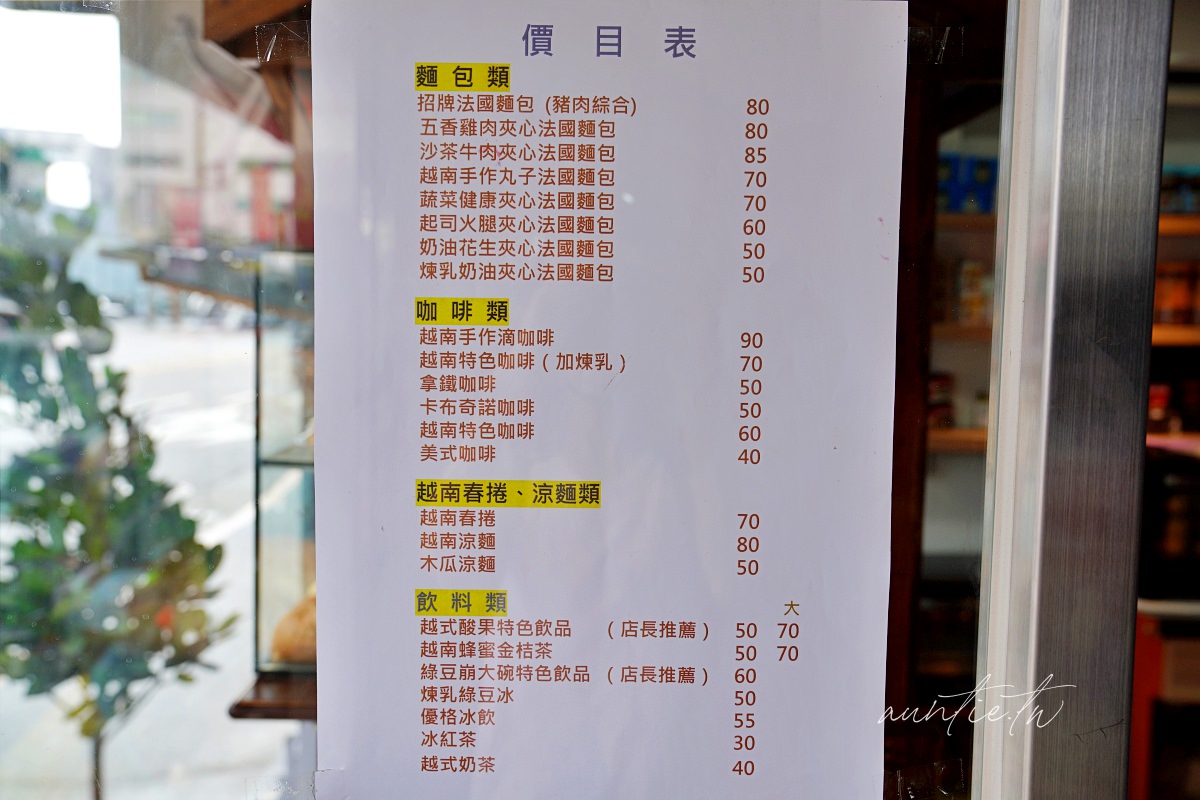 價 目 表
麵 包 類
招牌法國麵包 (豬肉綜合) 80
五香雞肉夾心法國麵包 80
沙茶牛肉夾心法國麵包 85
越南手作丸子法國麵包 70
蔬菜健康夾心法國麵包 70
起司火腿夾心法國麵包 60
奶油花生夾心法國麵包 50
煉乳奶油夾心法國麵包 50
咖 啡 類
越南手作滴咖啡 90
越南特色咖啡(加煉乳) 70
拿鐵咖啡 50
卡布奇諾咖啡 50
越南特色咖啡 60
美式咖啡 40
越南春捲、涼麵類
越南春捲 70
越南涼麵 80
木瓜涼麵 50
飲 料 類 大
越式酸果特色飲品 (店長推薦) 50 70
越南蜂蜜金桔茶 50 70
綠豆崩大碗特色飲品 (店長推薦) 60
煉乳綠豆冰 50
優格冰飲 55
冰紅茶 30
越式奶茶 40
auntie.tw